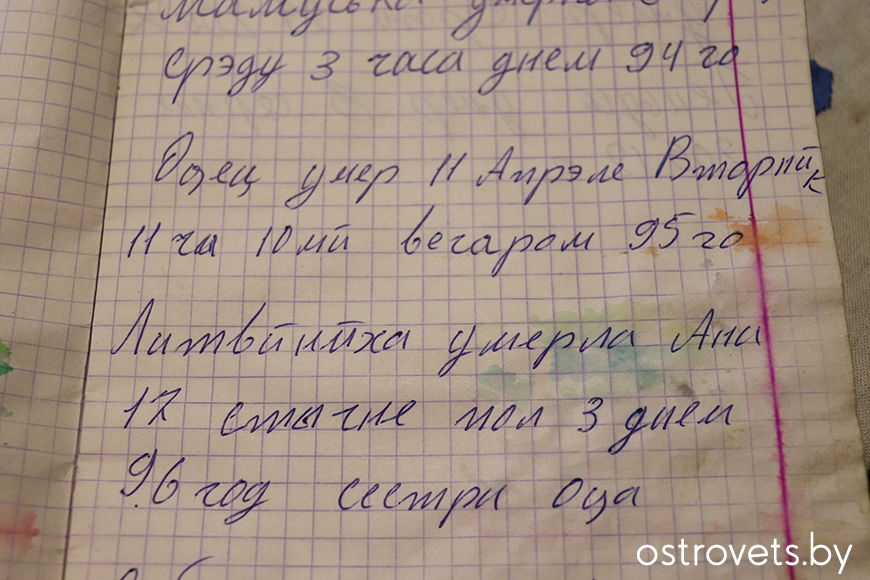 Мамуська умерла
срэду 3 часа днем 94 го
Оцец умер 11 Апрэле Вторйик
11 ча 10 мй вечаром 95 го
Литвйнйха умерла Ани
17 стычне пол 3 днем
96 год сестри Оца
ostrovets.by